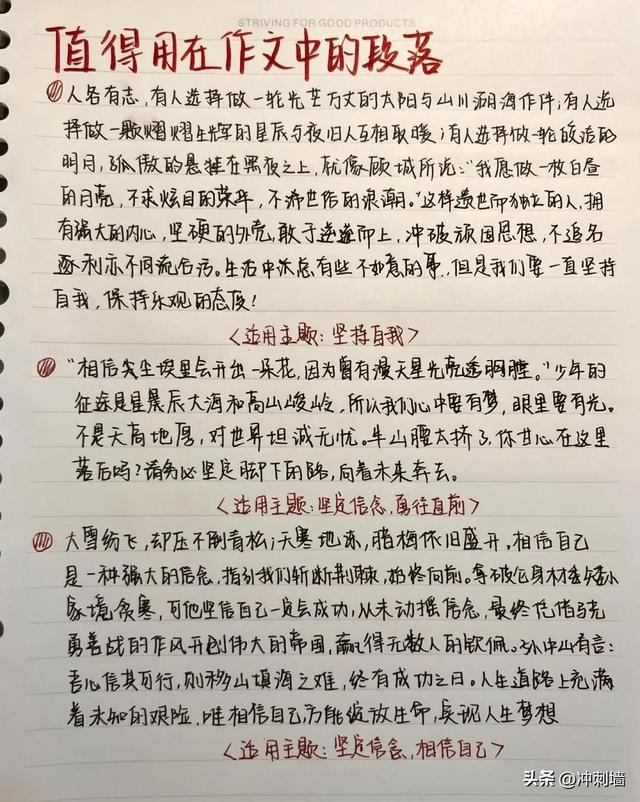 STRIVING FOR GOOD PRODUCTS
值得用在作文中的段落
人各有志,有人选择做一轮光芒万丈的太阳与山川湖海作伴;有人选
择做一颗熠熠生辉的星辰与夜归人互相取暖;有人选择做一轮皎洁的
明月,孤傲的悬挂在黑夜之上,就像顾城所说:“我愿做一枚白昼
的月亮,不求炫目的荣华,不淆世俗的浪潮。”这样遗世而独立的人,拥
有强大的内心,坚硬的外壳,敢于逆流而上,冲破顽固思想,不追名
逐利亦不同流合污。生活中总有些不如意的事,但是我们要一直坚持
自我,保持乐观的态度!
<适用主题:坚持自我>
“相信尘埃里会开出一朵花,因为曾有漫天星光亮透胸膛。”少年的
征途是星辰大海和高山峻岭,所以我们心中要有梦,眼里要有光。
不畏天高地厚,对世界坦诚无忧。半山腰太挤了,你甘心在这里
落后吗?请务必坚定脚下的路,向着未来奔去。
<适用主题:坚定信念,勇往直前>
大雪纷飞,却压不倒青松;天寒地冻,腊梅依旧盛开。相信自己
是一种强大的信念,指引我们斩断荆棘,始终向前。拿破仑身材矮小
家境贫寒,可他坚信自己一定会成功,从未动摇信念,最终凭借巧克
勇善战的作风开创伟大的帝国,赢得无数人的钦佩。孙中山有言:
吾心信其可行,则移山填海之难,终有成功之日。人生道路上充满
着未知的艰险,唯相信自己,方能绽放生命,实现人生梦想
<适用主题:坚定信念,相信自己>
头条 @冲刺墙